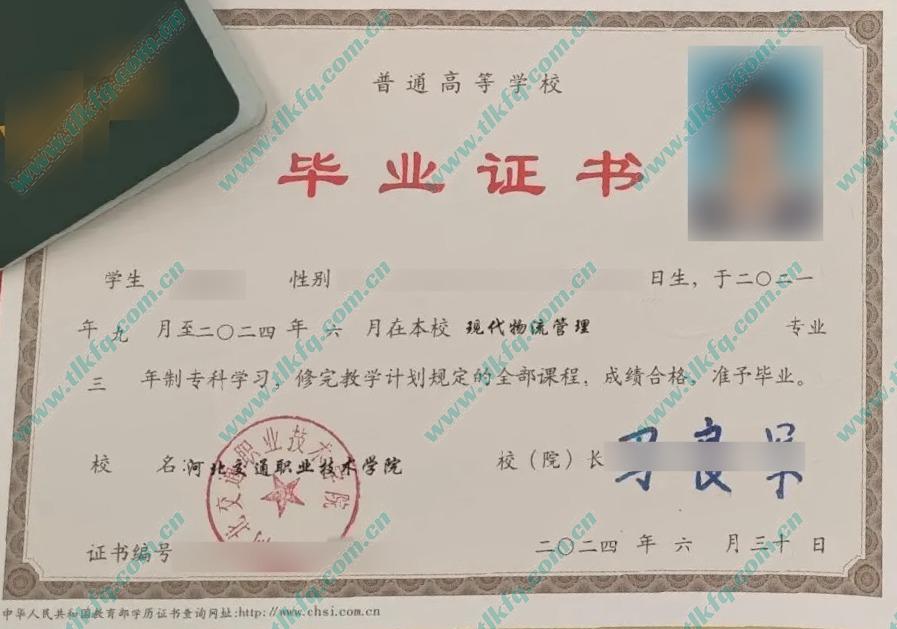 普通高等学校
毕业证书
学生 性别 日生，于二〇二一
年九月至二〇二四年六月在本校 现代物流管理 专业
三年制专科学习，修完教学计划规定的全部课程，成绩合格，准予毕业。
校 名：河北交通职业技术学院
校（院）长
河北交通职业技术学院
证书编号
二〇二四年六月三十日
中华人民共和国教育部学历证书查询网址:http://www.chsi.com.cn
www.tlkfq.com.cn